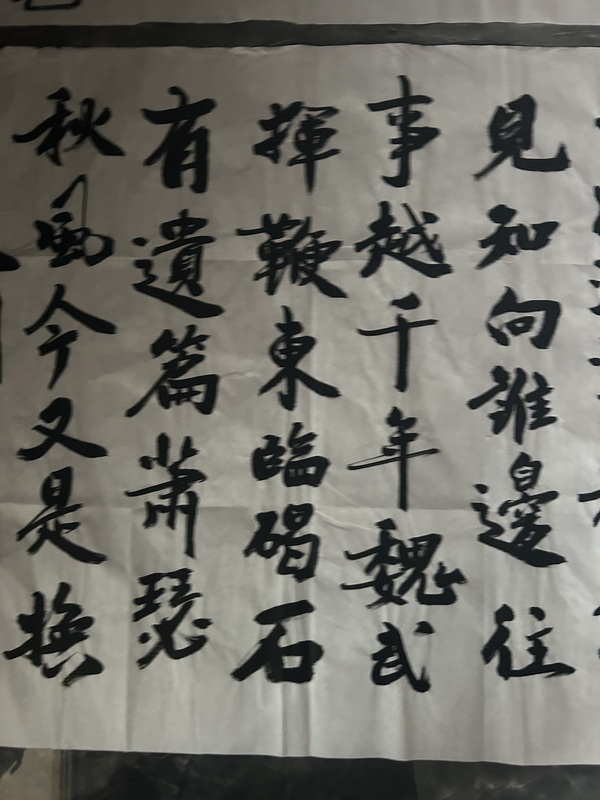 見知向誰邊往
事越千年魏武
揮鞭東臨碣石
有遺篇蕭瑟
秋風今又是換